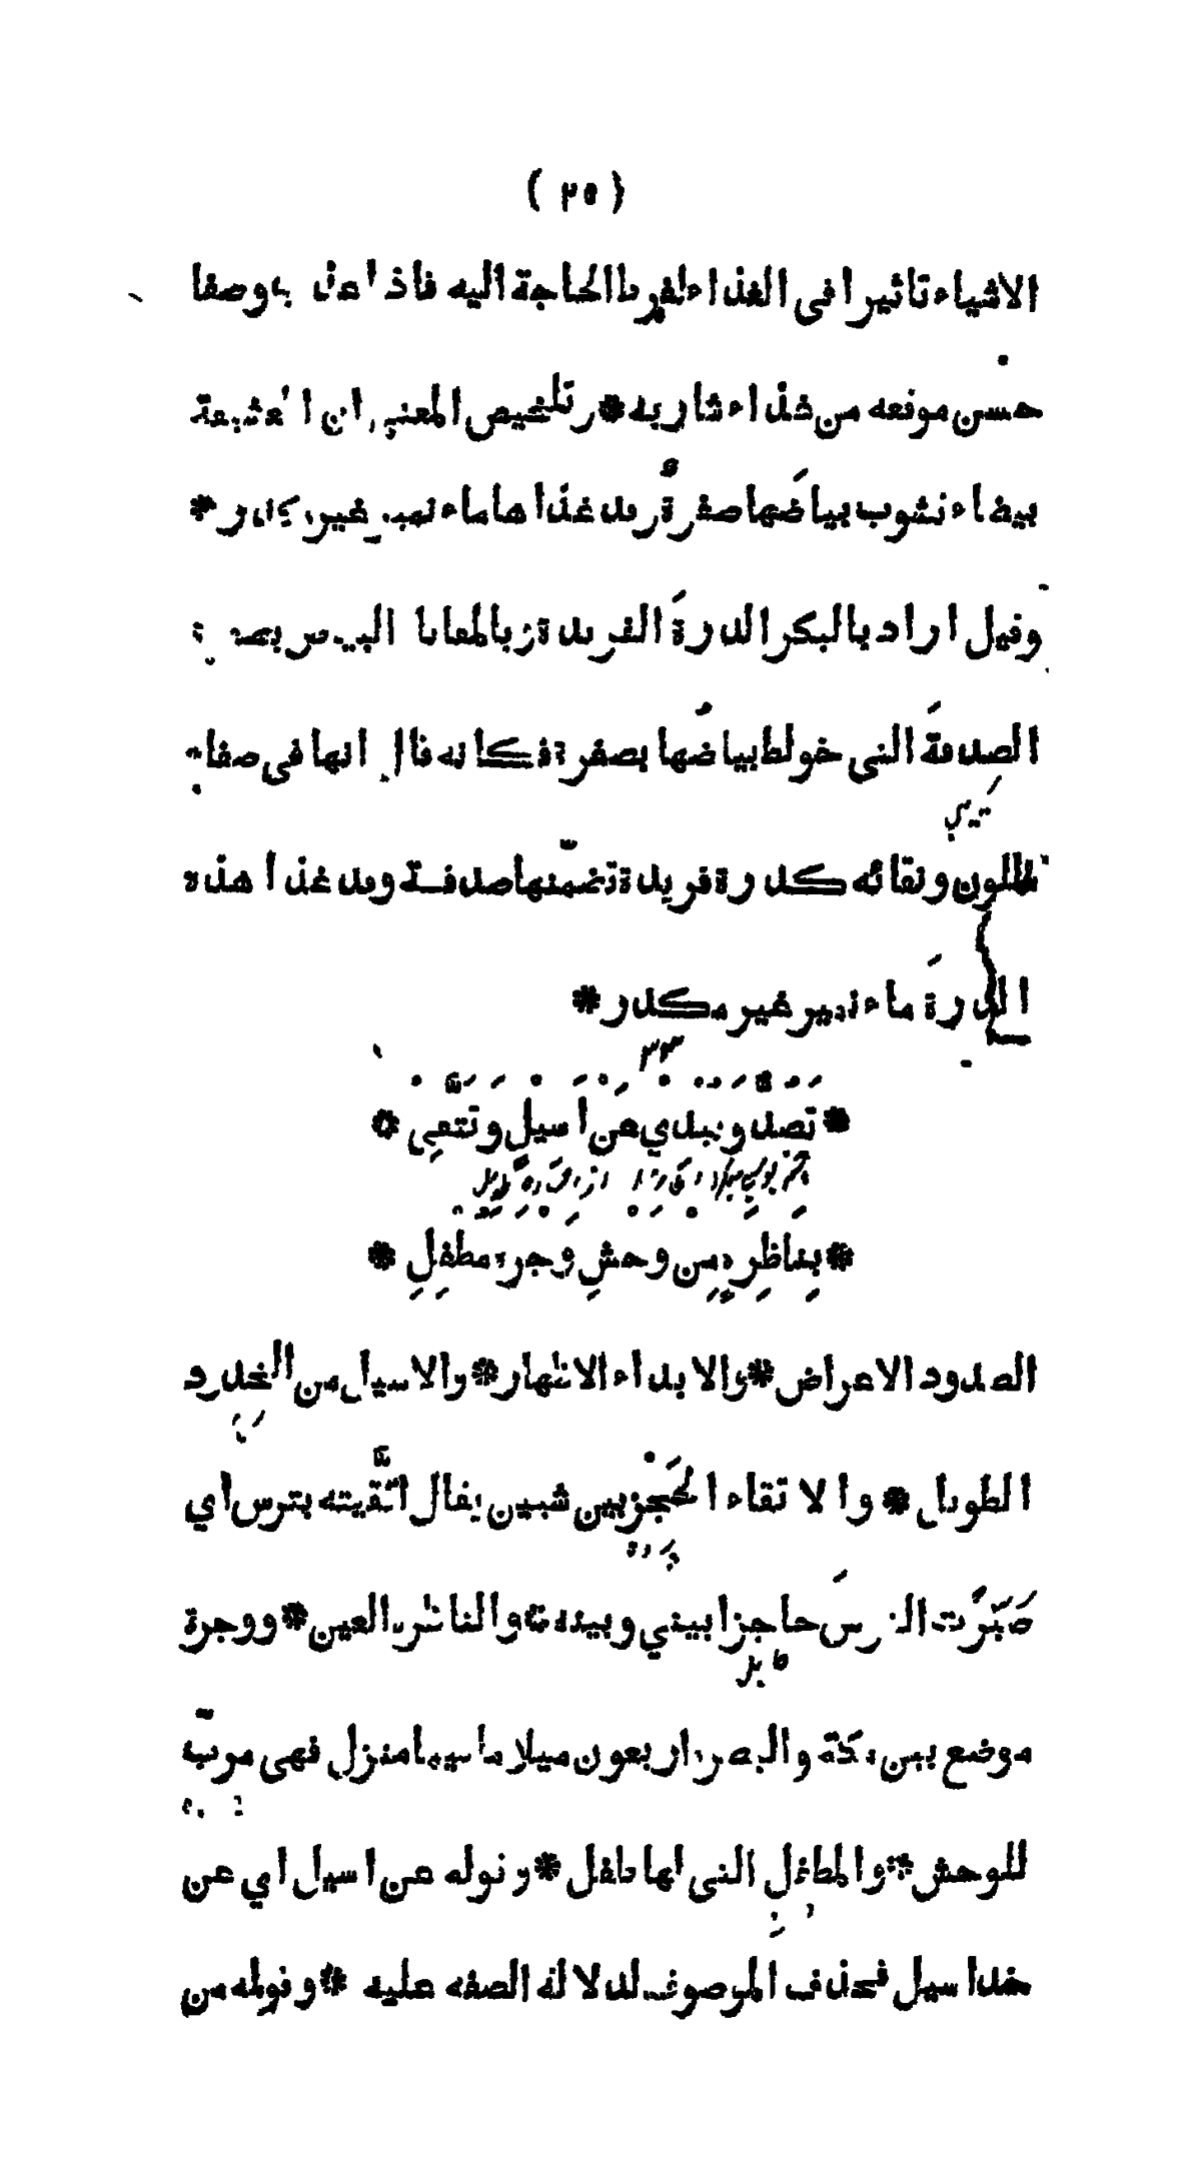 ( ٢٥ )
الاشياء تاثيرا فى الغذاء لفرط الحاجة اليه فاذا عذب وصفا
حسن موقعه من غذاء شاربه * وتلخيص المعنى ان العشيقة
بيضاء تشوب بياضَها صفرةٌ وقد غذاها ماء نمير غير مكدر *
وقيل اراد بالبكر الدرةَ الفريدة وبالمقاناة البياض بصفرة
الصدفةَ التى خولط بياضُها بصفرة فكانه قال انها فى صفاء
اللون ونقائه كدرة فريدة تضمّنها صدفة وقد غذا هذه
الدرةَ ماء نمير غير مكدر *
٣٣
* تَصُدُّ وَتُبْدِي عَنْ أَسِيلٍ وَتَتَّقِى *
* بِنَاظِرَةٍ مِنْ وَحْشِ وَجْرَةَ مُطْفِلِ *
الصدود الاعراض * والابداء الاظهار * والاسيل من الخدود
الطويل * والاتقاء الحَجْز بين شيئين يقال اتَّقيته بترس اي
صَيَّرْت الترسَ حاجزا بيني وبينه * والناظرة العين * ووجرة
موضع بين مكة والبصرة اربعون ميلا ما فيها منزل فهى مربّ
للوحش * والمطفل التى لها طفل * وقوله عن اسيل اي عن
خد اسيل فحذف الموصوف لدلالة الصفه عليه * وقوله من